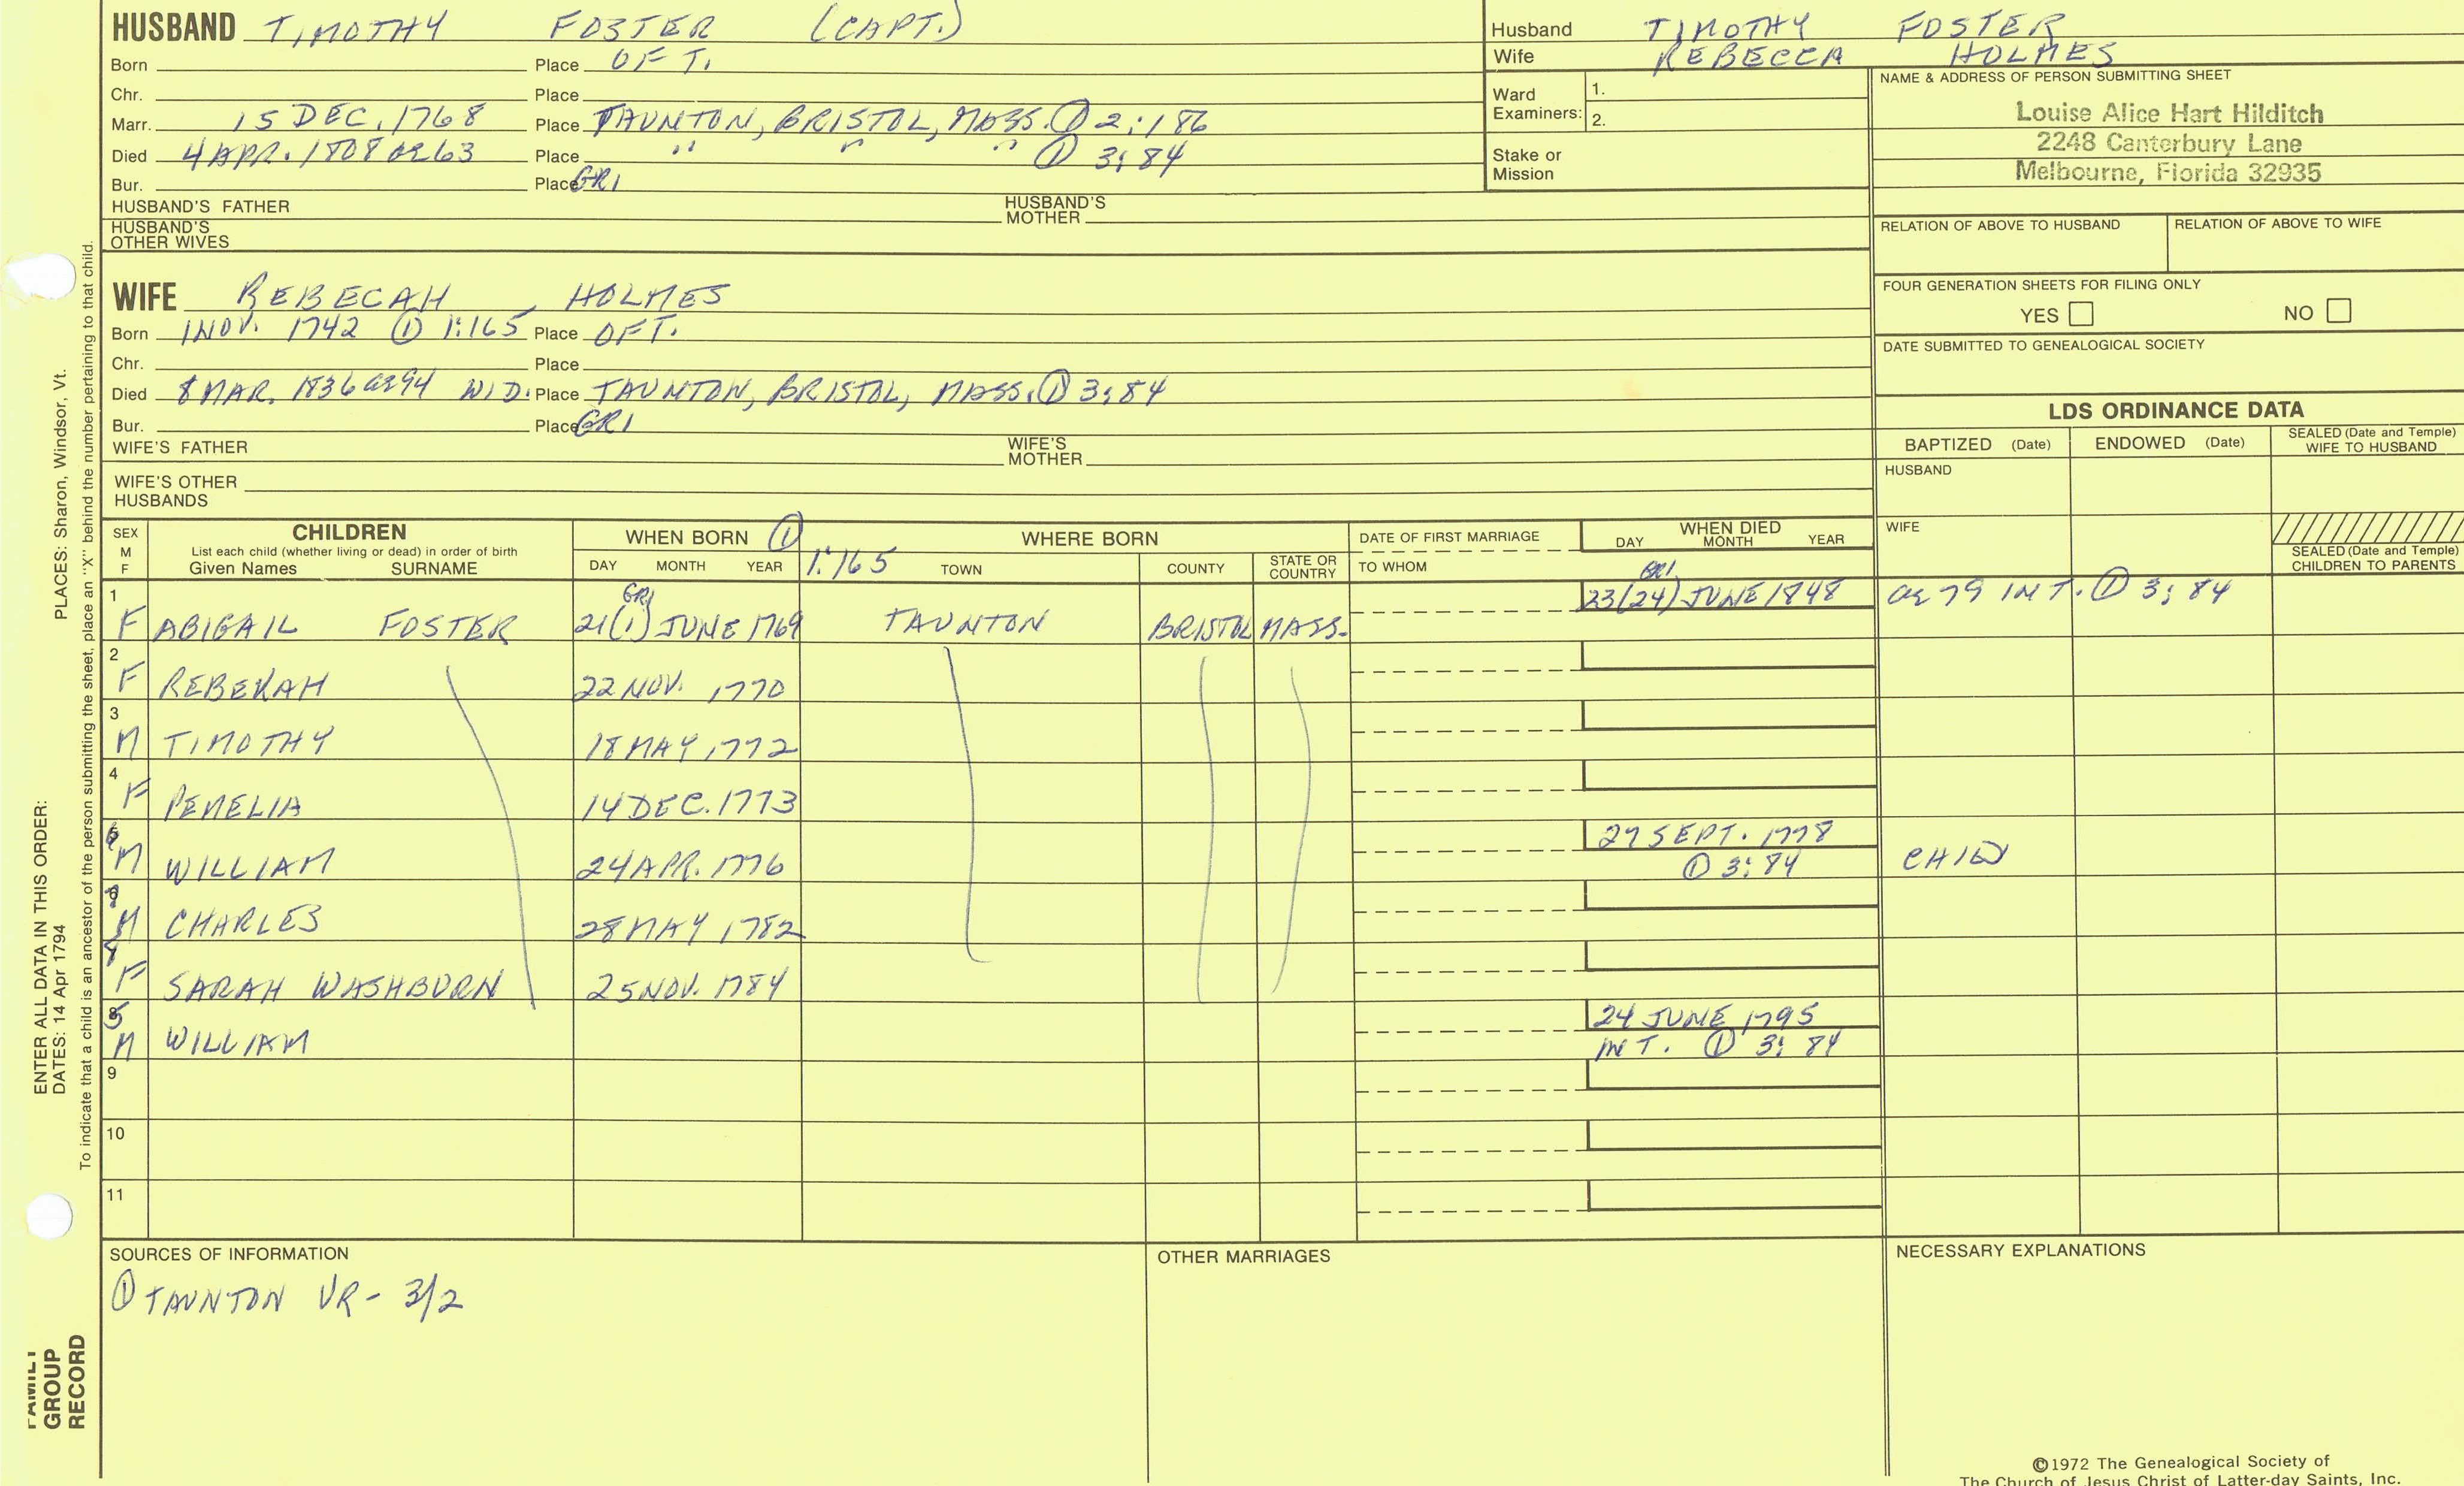 HUSBAND TIMOTHY FOSTER (CAPT.)
Born Place OF T.
Chr. Place
Marr. 15 DEC. 1768 Place TAUNTON, BRISTOL, MASS. ① 2:186
Died 4 APR. 1808 ae 63 Place " " " ① 3:84
Bur. Place GR1
HUSBAND'S FATHER HUSBAND'S MOTHER
HUSBAND'S OTHER WIVES
Husband TIMOTHY FOSTER
Wife REBECCA HOLMES
Ward Examiners: 1.
2.
Stake or Mission
NAME & ADDRESS OF PERSON SUBMITTING SHEET
Louise Alice Hart Hilditch
2248 Canterbury Lane
Melbourne, Florida 32935
RELATION OF ABOVE TO HUSBAND RELATION OF ABOVE TO WIFE
FOUR GENERATION SHEETS FOR FILING ONLY
YES NO
DATE SUBMITTED TO GENEALOGICAL SOCIETY
WIFE REBECAH HOLMES
Born 1 NOV. 1742 ① 1:165 Place OF T.
Chr. Place
Died 8 MAR. 1836 ae 94 WID. Place TAUNTON, BRISTOL, MASS. ① 3:84
Bur. Place GR1
WIFE'S FATHER WIFE'S MOTHER
WIFE'S OTHER HUSBANDS
LDS ORDINANCE DATA
BAPTIZED (Date) ENDOWED (Date) SEALED (Date and Temple) WIFE TO HUSBAND
HUSBAND
WIFE
SEALED (Date and Temple) CHILDREN TO PARENTS
SEX M F CHILDREN
List each child (whether living or dead) in order of birth
Given Names SURNAME
WHEN BORN ① 1:165
DAY MONTH YEAR
WHERE BORN
TOWN COUNTY STATE OR COUNTRY
DATE OF FIRST MARRIAGE
TO WHOM
WHEN DIED
DAY MONTH YEAR
1 F ABIGAIL FOSTER 21(1) GR1 JUNE 1769 TAUNTON BRISTOL MASS. 23(24) GR1 JUNE 1848 ae 79 IN T. ① 3:84
2 F REBEKAH 22 NOV. 1770
3 M TIMOTHY 18 MAY 1772
4 F PEMELIA 14 DEC. 1773
5 M WILLIAM 24 APR. 1776 27 SEPT. 1778 ① 3:84 CHILD
6 M CHARLES 28 MAY 1782
7 F SARAH WASHBURN 25 NOV. 1784
8 M WILLIAM 24 JUNE 1795
IN T. ① 3:84
9
10
11
SOURCES OF INFORMATION
① TAUNTON VR - 3/2
OTHER MARRIAGES
NECESSARY EXPLANATIONS
©1972 The Genealogical Society of
The Church of Jesus Christ of Latter-day Saints, Inc.
ENTER ALL DATA IN THIS ORDER:
DATES: 14 Apr 1794
PLACES: Sharon, Windsor, Vt.
To indicate that a child is an ancestor of the person submitting the sheet, place an "X" behind the number pertaining to that child.
FAMILY
GROUP
RECORD